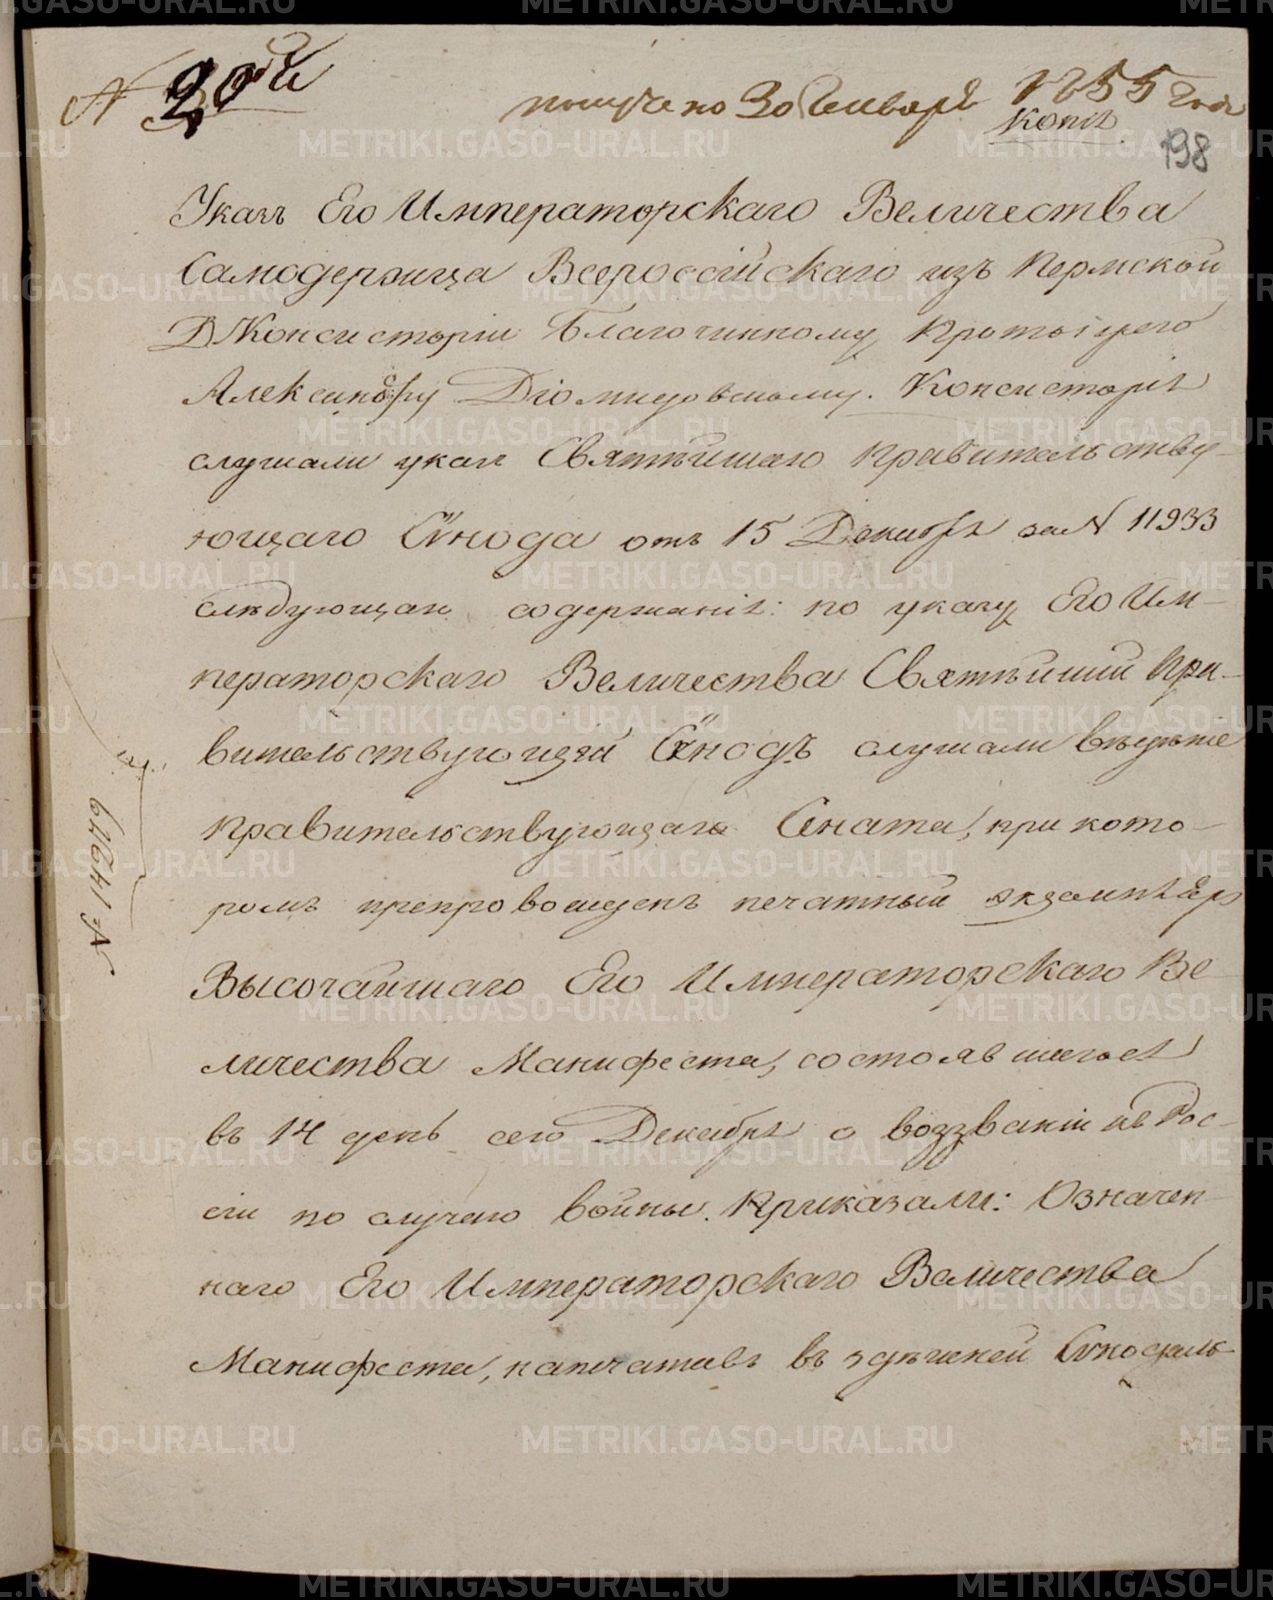 N 20й
получено 30 Января 1855 года
Копія
198
Указъ Его Императорскаго Величества
Самодержца Всероссійскаго изъ Пермской
Д Консисторіи Благочинному Протоіерею
Александру Діомидовскому. Консисторія
слушали указъ Святѣйшаго Правительству-
ющаго Сѵнода отъ 15 Декабря за N 11933
слѣдующаго содержанія: по указу Его Им-
ператорскаго Величества Святѣйшій Пра-
вительствующій Сѵнодъ слушали вѣденіе
Правительствующаго Сената, при кото-
ромъ препровожденъ печатный экземпляръ
Высочайшаго Его Императорскаго Ве
личества Манифеста, состоявшагося
въ 14 день сего Декабря о воззваніи къ Рос-
сіи по случаю войны. Приказали: Означен
наго Его Императорскаго Величества
Манифеста, напечатавъ въ здѣшней Сѵнодаль-
№ 14276
METRIKI.GASO-URAL.RU